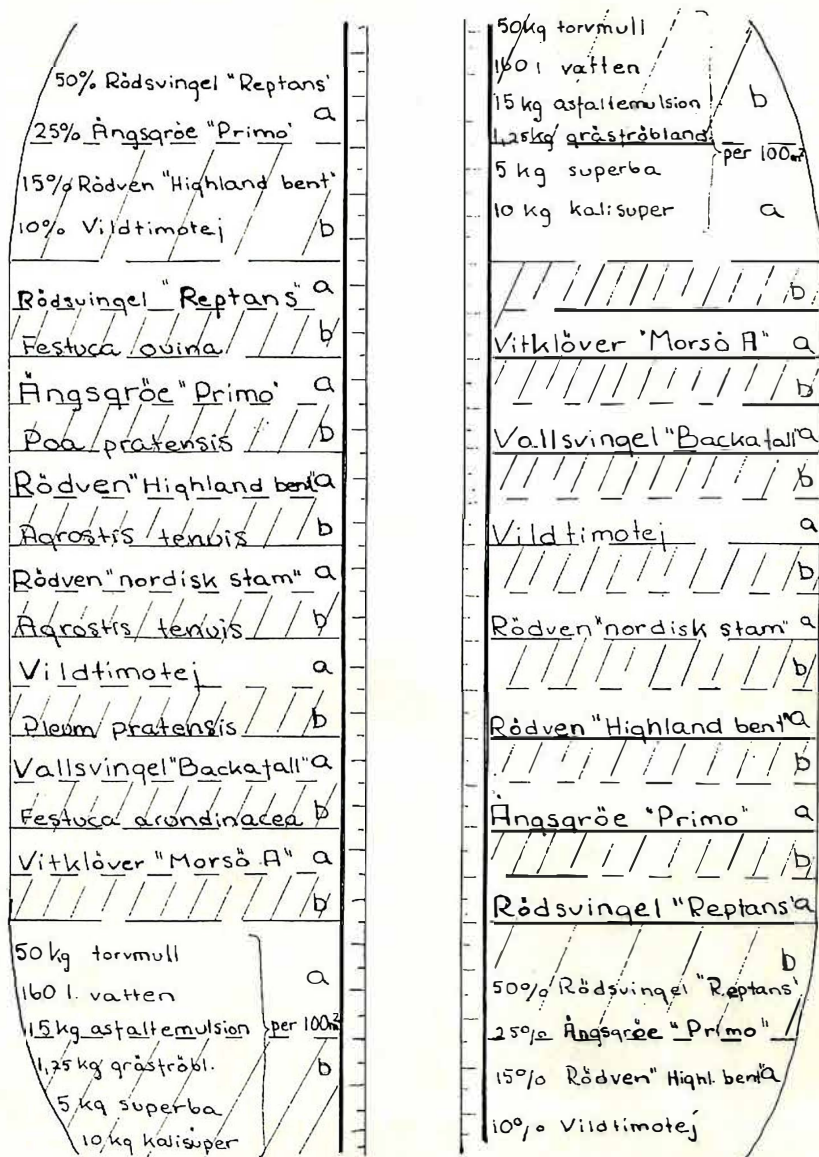 50% Rödsvingel "Reptans"
a
25% Ängsgröe "Primo"
15% Rödven "Highland bent"
10% Vildtimotej b
Rödsvingel "Reptans" a
Festuca ovina b
Ängsgröe "Primo" a
Poa pratensis b
Rödven "Highland bent" a
Agrostis tenuis b
Rödven "nordisk stam" a
Agrostis tenuis b
Vildtimotej a
Pleum pratensis b
Vallsvingel "Backafall" a
Festuca arundinacea b
Vitklöver "Morsö A" a
b
50 kg torvmull
a
160 l. vatten
15 kg asfaltemulsion per 100m²
1,25 kg gräströbl. b
5 kg superba
10 kg kalisuper
50kg torvmull
160 l vatten
15 kg asfaltemulsion b
1,25kg gräströbland. per 100m²
5 kg superba
10 kg kalisuper a
b
Vitklöver "Morsö A" a
b
Vallsvingel "Backafall" a
b
Vildtimotej a
b
Rödven "nordisk stam" a
b
Rödven "Highland bent" a
b
Ängsgröe "Primo" a
b
Rödsvingel "Reptans" a
b
50% Rödsvingel "Reptans"
25% Ängsgröe "Primo"
15% Rödven "Highl. bent" a
10% Vildtimotej